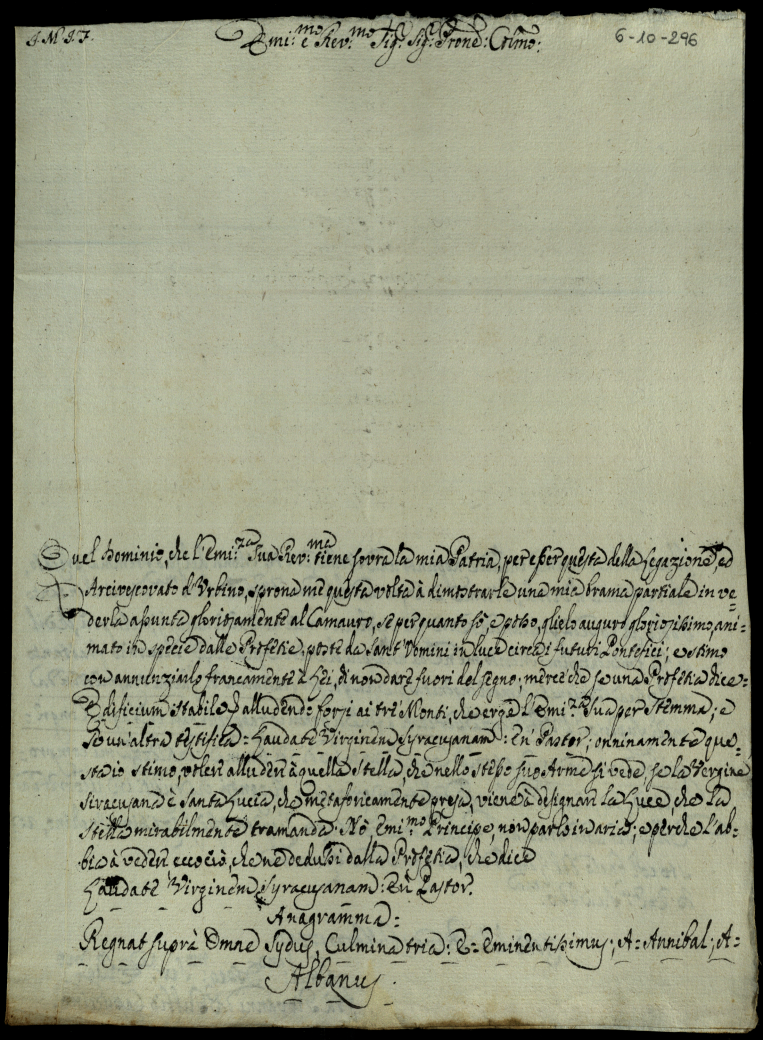 J. M. J. F.
Emi:mo e Rev:mo Sig:r Sig:r Prone: Colmo:
6-10-296
Quel Dominio, che l'Emi:za Sua Rev:ma tiene sovra la mia Patria, per esser questa della Legazione, ed
Arcivescovato d'Urbino, sprona me questa volta à dimostrarle una mia brama partiale in ve=
derla apunto gloriosamente al Camauro, e per quanto sò, e posso, glielo auguro gloriosissimo, ani=
mato in specie dalle Profetie, poste da Sant' Uomini in luce circa i futuri Pontefici; e stimo
con annunziarlo francamente à Lei, di non dare fuori del segno, mercè che se una Profetia dice=
Edificium stabile, alludendo forsi ai tre Monti, che erge l'Emi:za Sua per Stemma; e
se un'altra testifica= Laudate Virginem Syracusanam: En Pastor; onninamente que=
sta io stimo, voleri alluderi à quella Stella, che nello stesso suo Arme si vede, se la Vergine
Siracusana è Santa Lucia, che metaforicamente presa, viene à designari la Luce, che la
Stella mirabilmente tramanda. Nò Emi:mo Principe, non parlo in aria; e perche l'ab=
bia à vederi eccocio, che ne dedussi dalla Profetia, che dice
Laudate Virginem Syracusanam: En Pastor.
Anagramma=
Regnat suprà Omne Sydus, Culmina tria: E= Eminentissimus; A= Annibal; A=
Albanus.